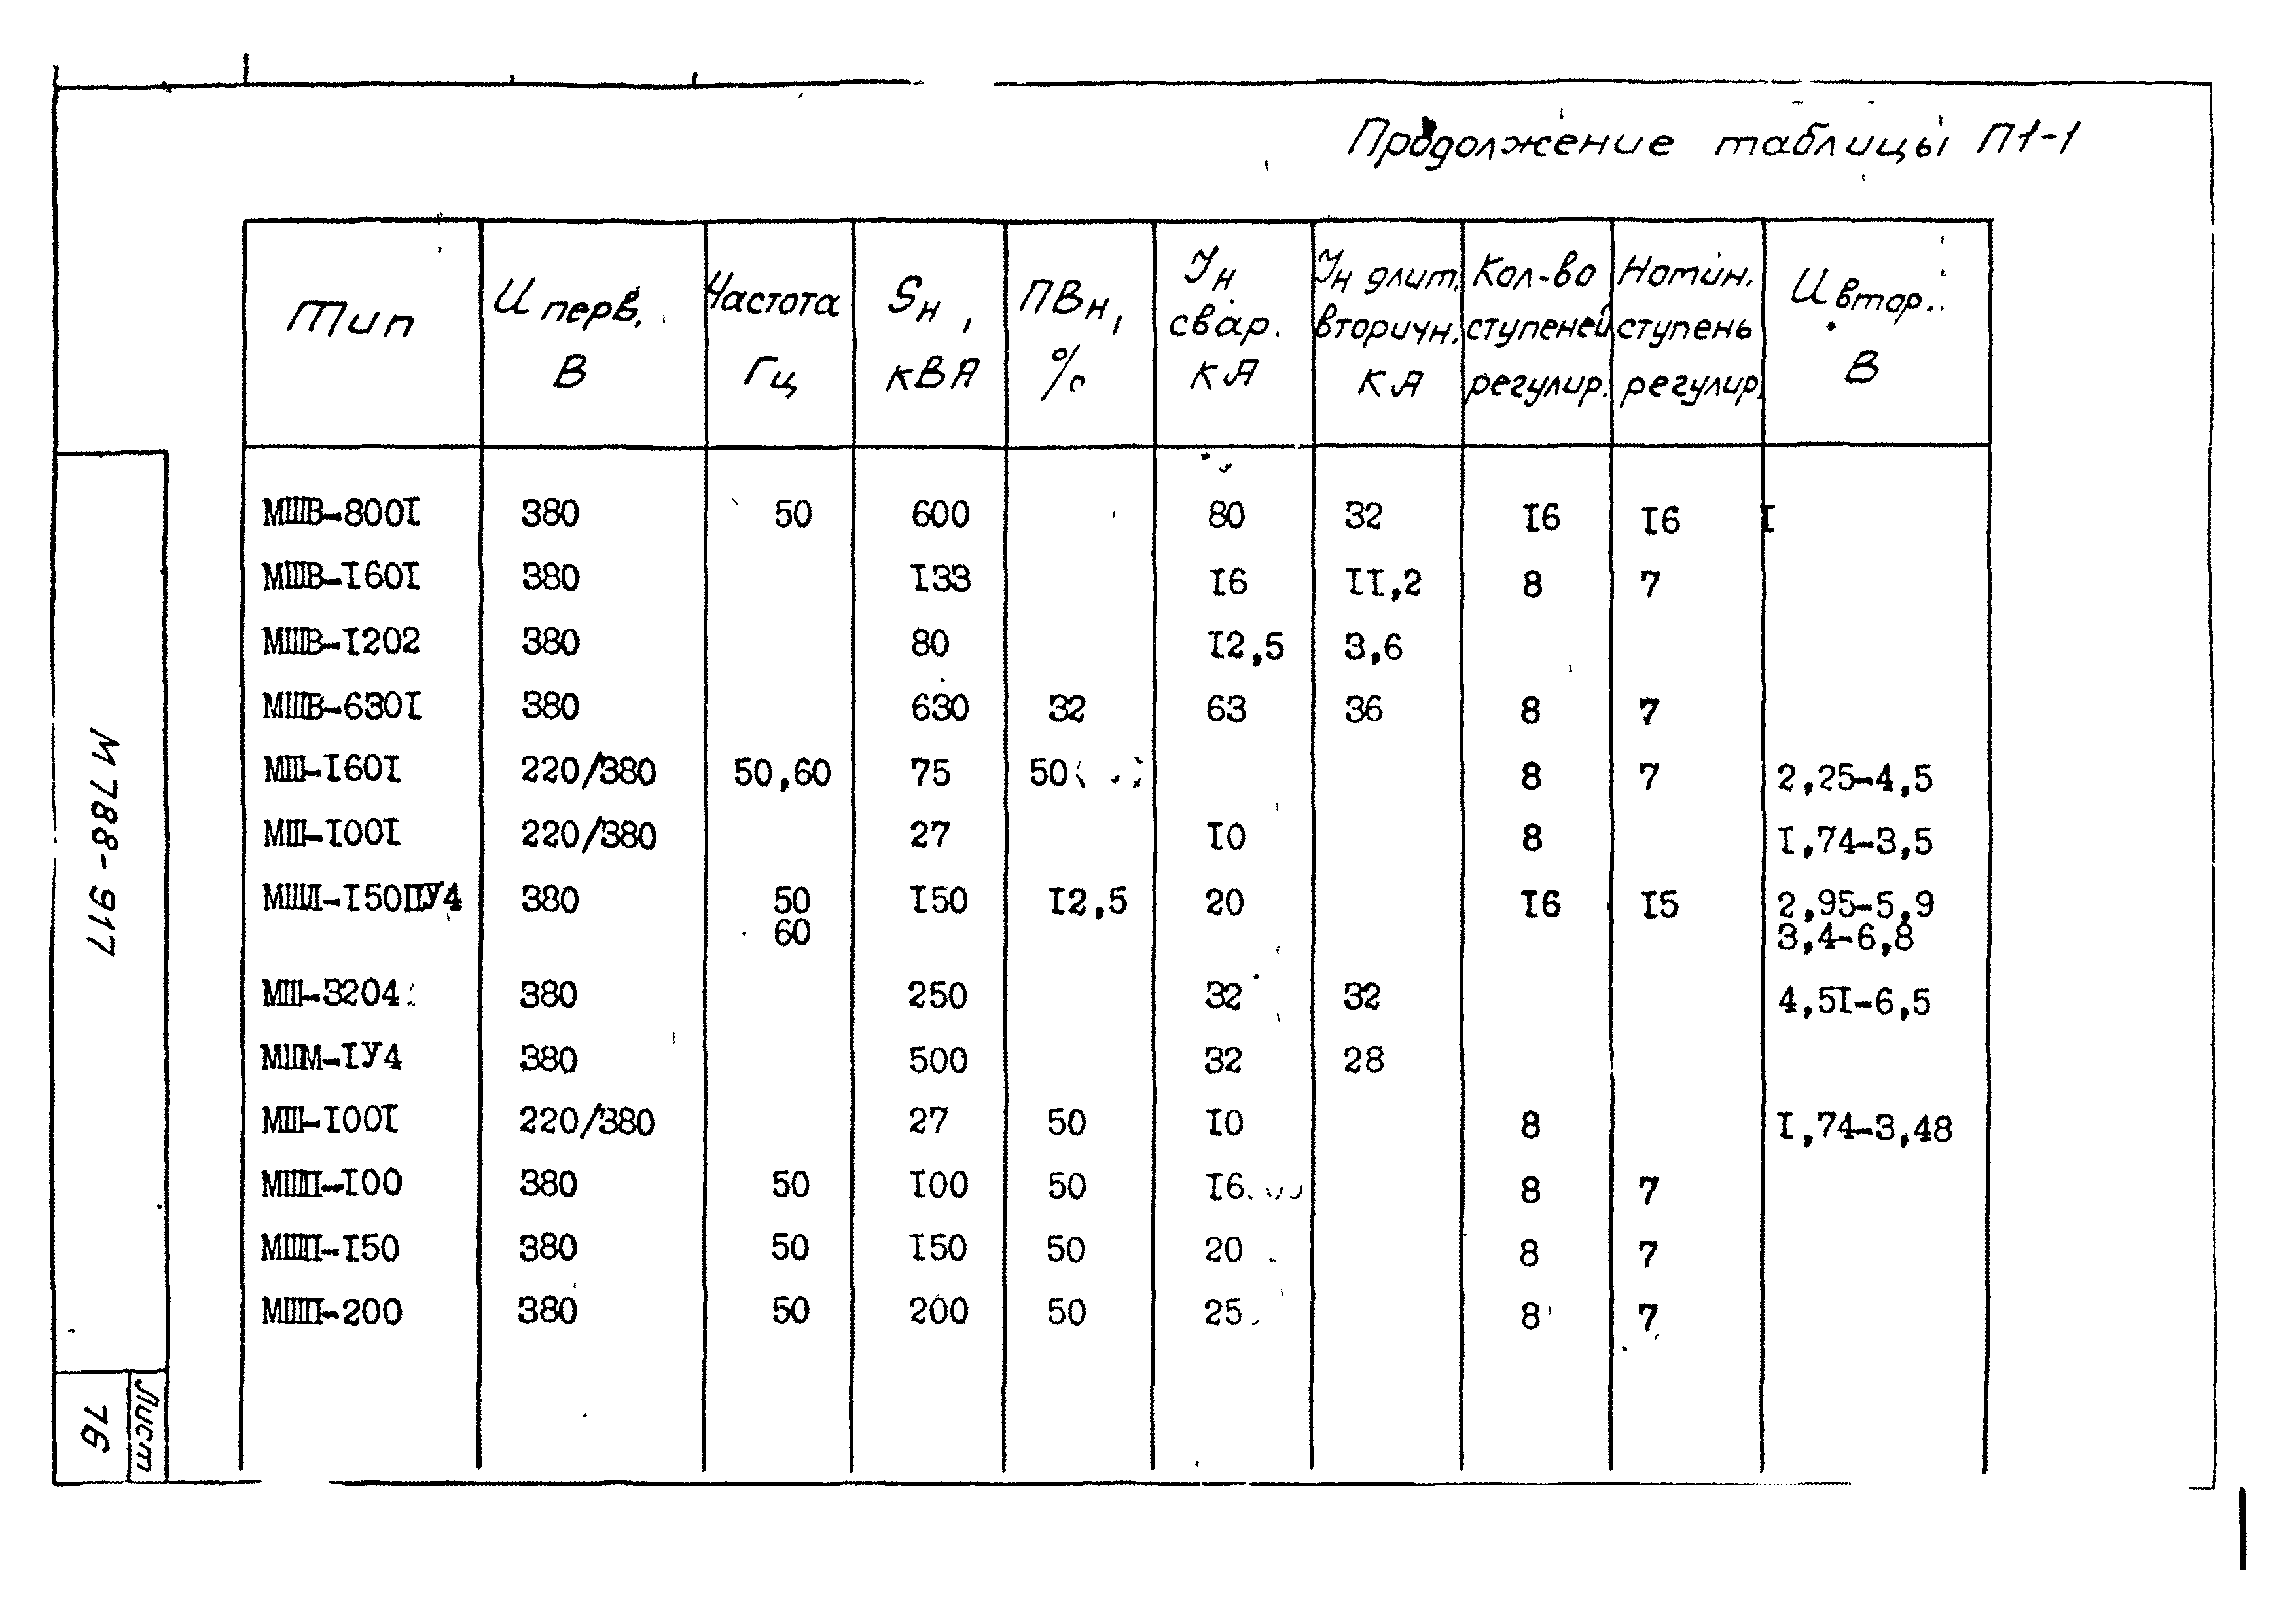 Продолжение таблицы П1-1
Тип | U перв., В | Частота Гц | Sн, кВА | ПВн, % | Iн свар. кА | Iн длит. вторичн. кА | Кол-во ступеней регулир. | Номин. ступень регулир. | U втор. В
МШВ-8001 380 50 600 80 32 16 16 1
МШВ-1601 380 133 16 11,2 8 7
МШВ-1202 380 80 12,5 3,6
МШВ-6301 380 630 32 63 36 8 7
МШ-1601 220/380 50,60 75 50 8 7 2,25-4,5
МШ-1001 220/380 27 10 8 1,74-3,5
МШЛ-150ПУ4 380 50 150 12,5 20 16 15 2,95-5,9
60 3,4-6,8
МШ-3204 380 250 32 32 4,51-6,5
МШМ-1У4 380 500 32 28
МШ-1001 220/380 27 50 10 8 1,74-3,48
МШП-100 380 50 100 50 16 8 7
МШП-150 380 50 150 50 20 8 7
МШП-200 380 50 200 50 25 8 7
М788-917
Лист
76